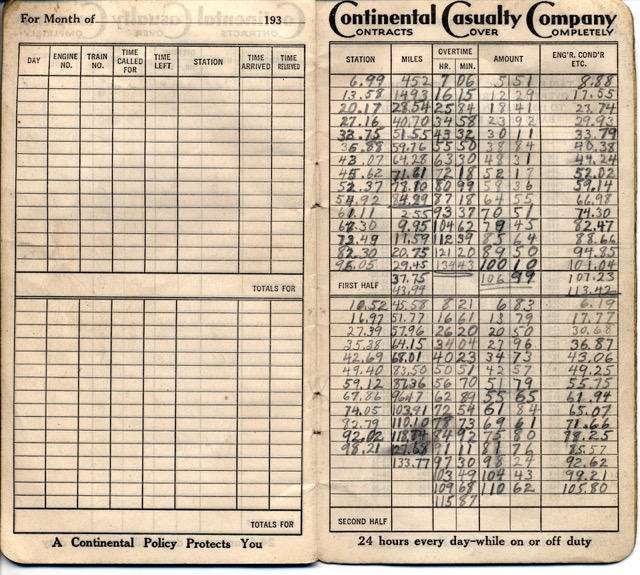 For Month of 193
DAY ENGINE NO. TRAIN NO. TIME CALLED FOR TIME LEFT STATION TIME ARRIVED TIME RELIEVED
TOTALS FOR
TOTALS FOR
A Continental Policy Protects You
Continental Casualty Company
CONTRACTS COVER COMPLETELY
STATION MILES OVERTIME HR. MIN. AMOUNT ENG'R. COND'R ETC.
6.99 452 7 06 5 51 8.88
13.58 1493 16 15 12 29 17.55
20.17 28.54 25 84 18 41 23.74
27.16 40.70 34 58 23 92 29.93
51.55 43 32 30 11 33.79
59.76 55 50 38 84 40.38
43.07 64.28 63 30 48 31 44.24
45.62 71.61 72 18 52 17 52.02
52.37 78.80 80 99 58 36 59.14
54.92 84.29 87 18 64 55 66.98
61.11 2.55 93 37 70 51 74.30
67.30 9.95 104 62 79 45 82.47
73.49 11.59 112 39 85 64 88.66
82.30 20.75 121 20 89 50 94.85
29.45 134 43 100 10 101.04
FIRST HALF 37.75 106 99 107.23
43.99 113.42
10.52 45.58 8 21 6 83 6.19
16.97 51.77 16 61 13 79 17.77
27.39 57.96 26 20 20 50 30.68
35.38 64.15 34 04 27 96 36.87
42.69 68.01 40 23 34 73 43.06
49.40 83.50 50 51 42 57 49.25
59.12 87.36 56 70 51 79 55.75
67.86 96.47 62 89 55 65 61.94
74.05 103.91 72 54 61 84 65.07
82.79 110.10 78 73 69 61 71.66
92.02 84 92 75 80 78.25
98.21 91 11 81 76 85.57
133.77 97 30 98 24 92.62
103 49 104 43 99.21
109 68 110 62 105.80
115 87
SECOND HALF
24 hours every day—while on or off duty